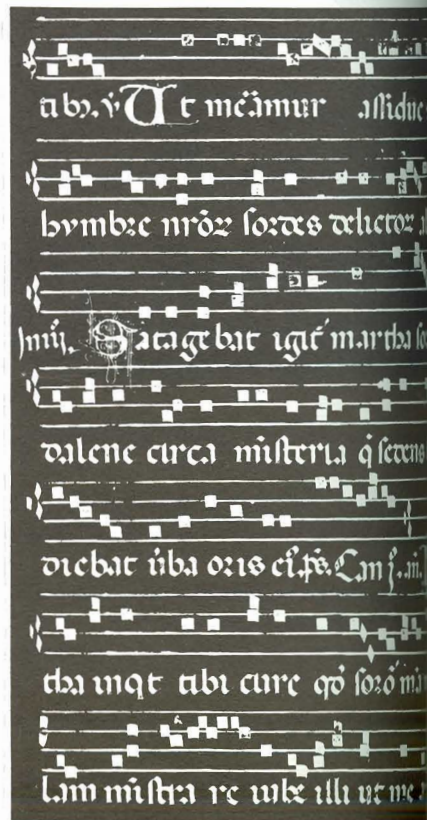 tibꝫ. ℣ Ut mẽamur assidue
hymbre nrõꝝ sordes delictoꝝ
Satagebat igit᷑ martha so
dalene circa mĩsteria q̃ sedens
diebat ũba oris eiꝰ. p̃s. Can
tha inqt tibi cure qõ sorõ
lam mĩstra re iube illi ut me